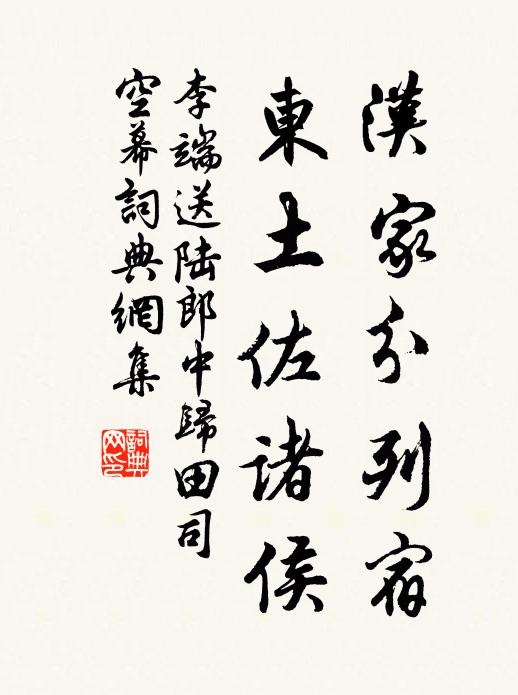 漢家分列宿
東土佐諸侯
李端送陆郎中歸田司
空幕詞典網集
詞典网印